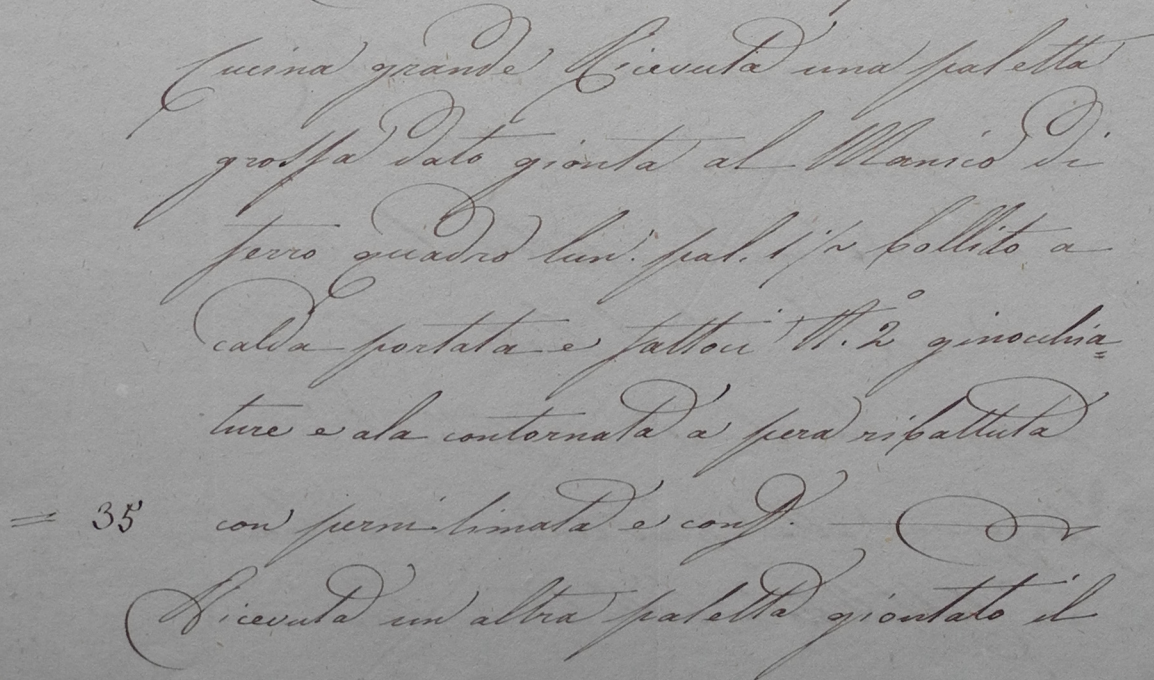 Cucina grande Ricevuta una paletta
grossa dato gionta al Manico di
ferro quadro lun. pal. 1 1/2 bollito a
calda portata e fattoci N.º 2 ginocchia=
ture e ala contornata a pera ribattuta
= 35 con perni limata e cong.
Ricevuta un altra paletta giontato il